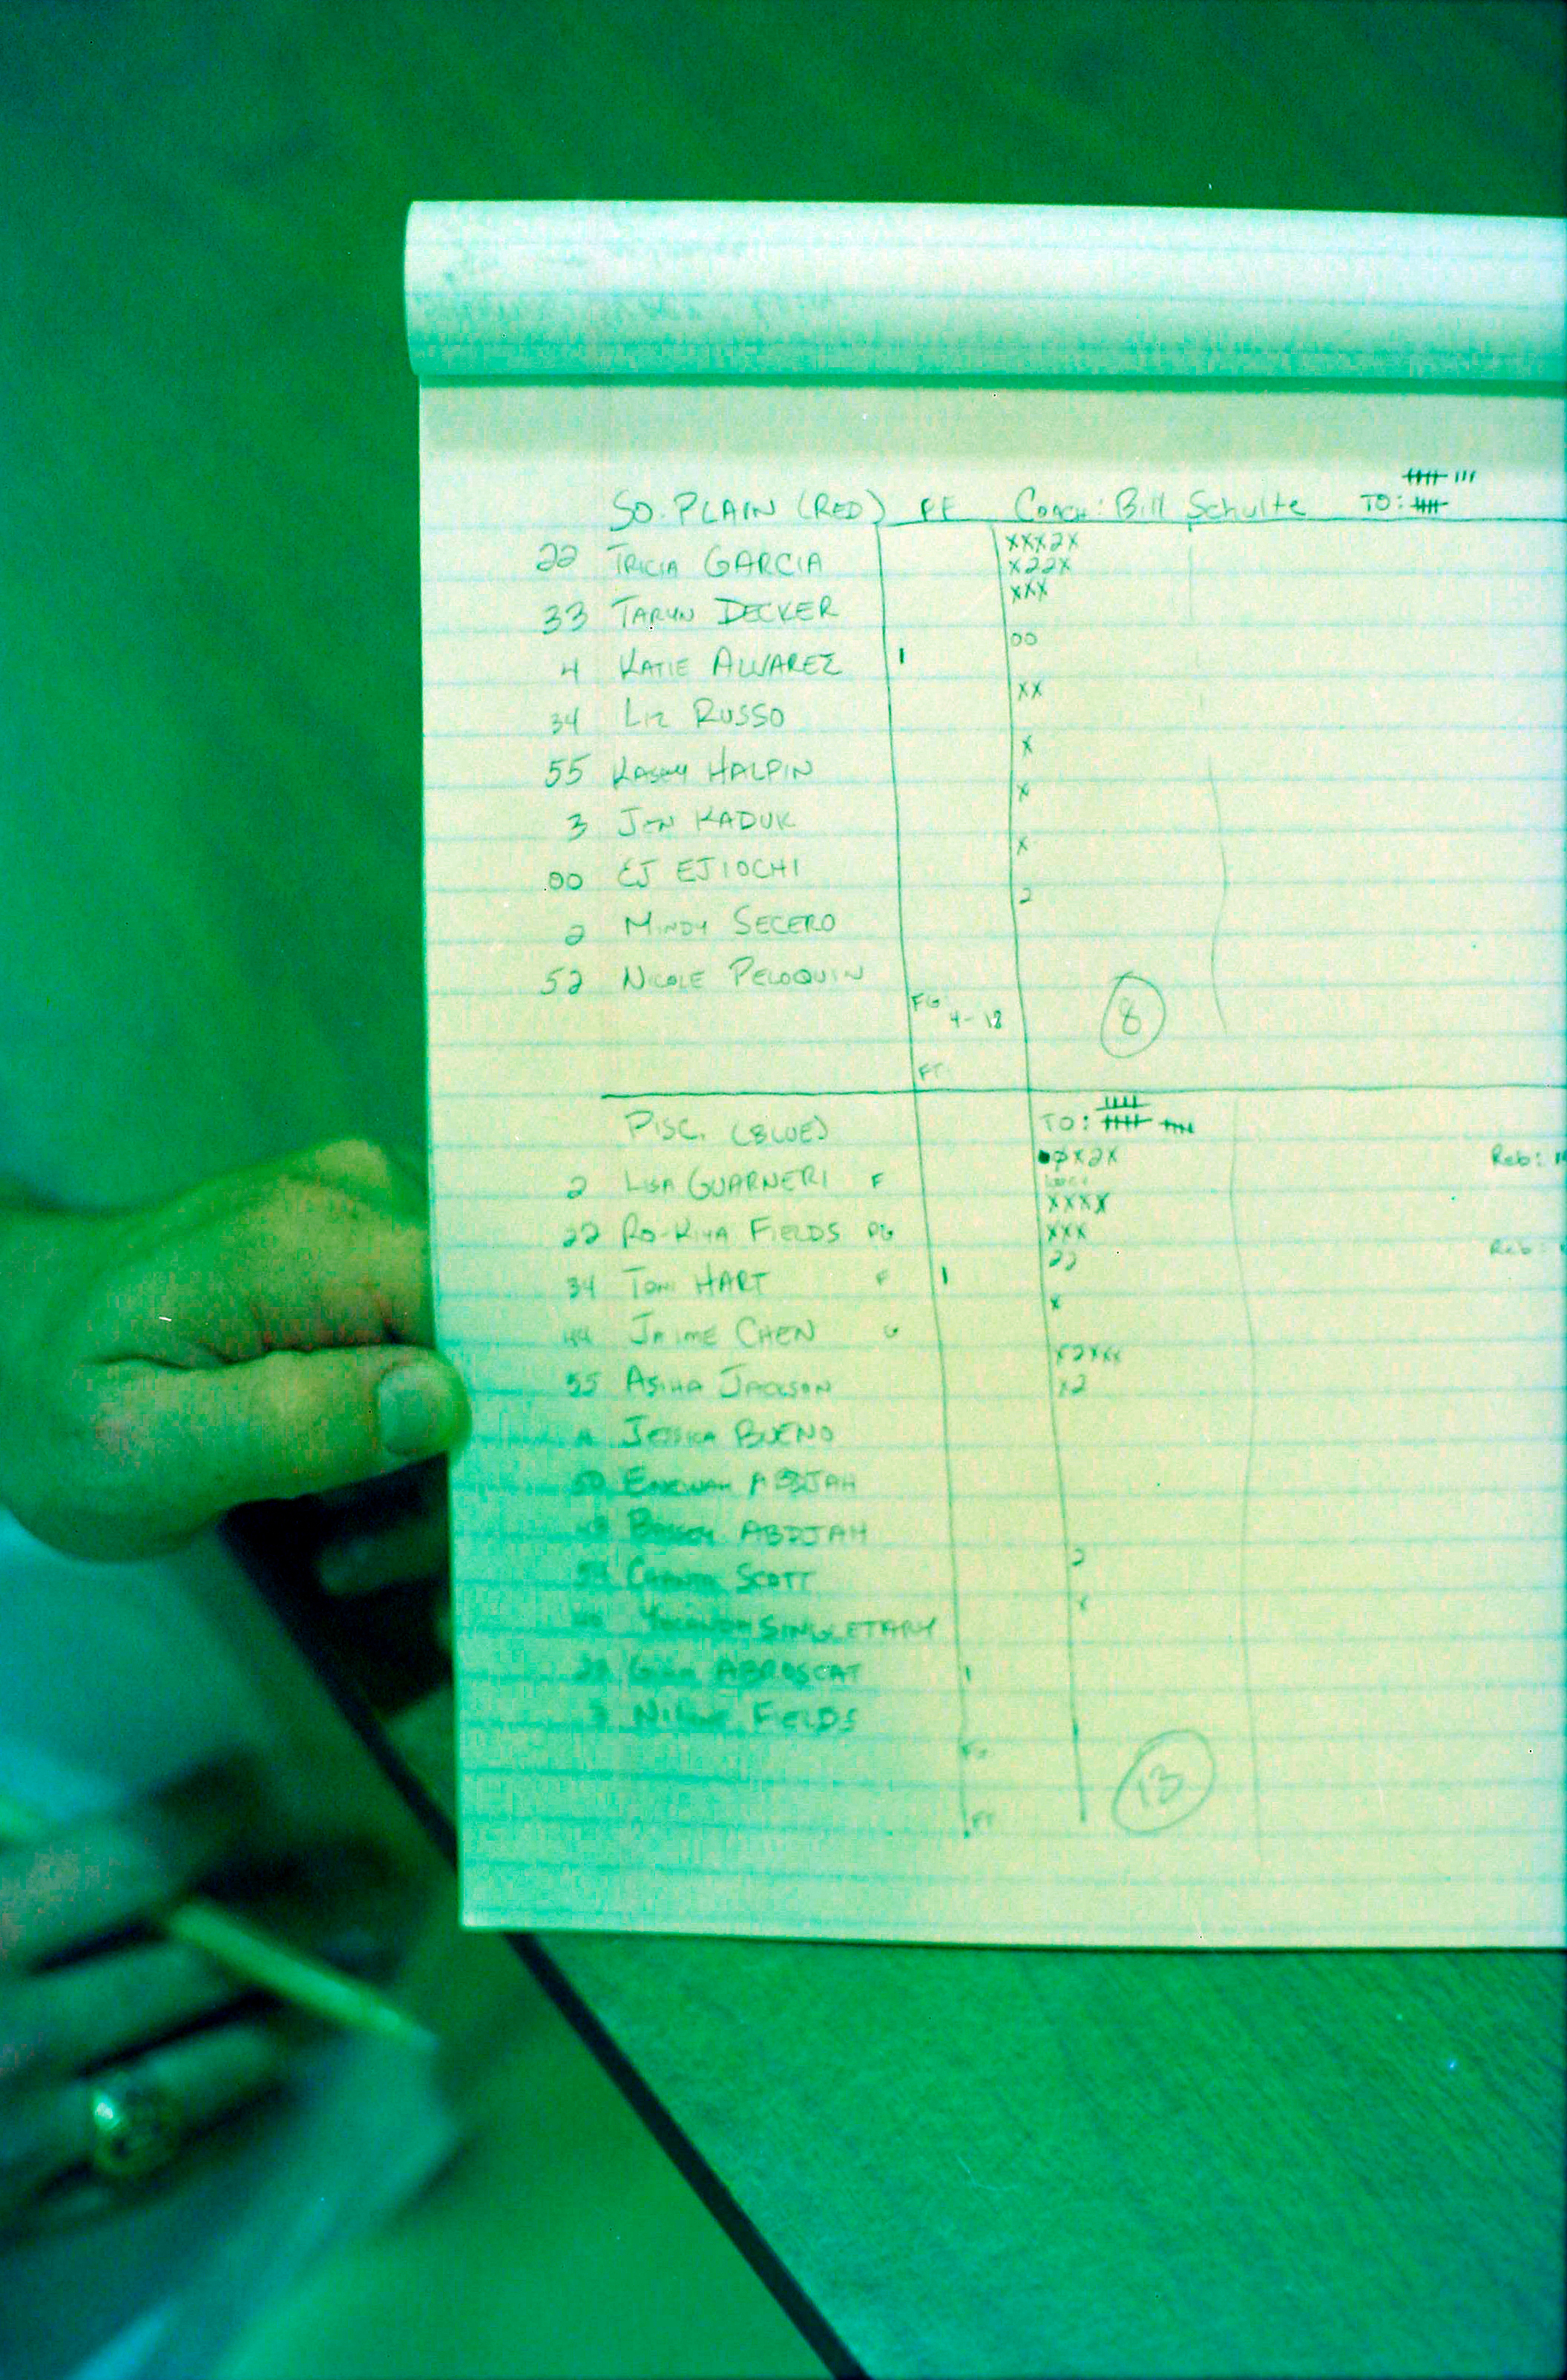 SO. PLAIN (RED) PF COACH: Bill Schulte TO: 𝍸 𝍸 III
22 TRICIA GARCIA XXX2X
X22X
33 TARYN DECKER XXX
4 KATIE ALVAREZ I 00
34 LIZ RUSSO XX
55 KASEY HALPIN X
3 JEN KADUK X
00 EJ EJIOCHI X
2 MINDY SECERO 2
52 NICOLE PELOQUIN
FG 4-18 8
FT
PISC. (BLUE) TO:
2 LISA GUARNERI F 0X2X Reb:
22 RO-KIYA FIELDS PG XXXX
XXX
34 TONI HART F I 22 Reb:
44 JAIME CHEN G X
55 ASIHA JACKSON X2XXX
X2
JESSICA BUENO
50 ABDJAH
ABDJAH
SCOTT 2
SINGLETARY X
GINA ABROSCAT I
FIELDS
FG 13
FT